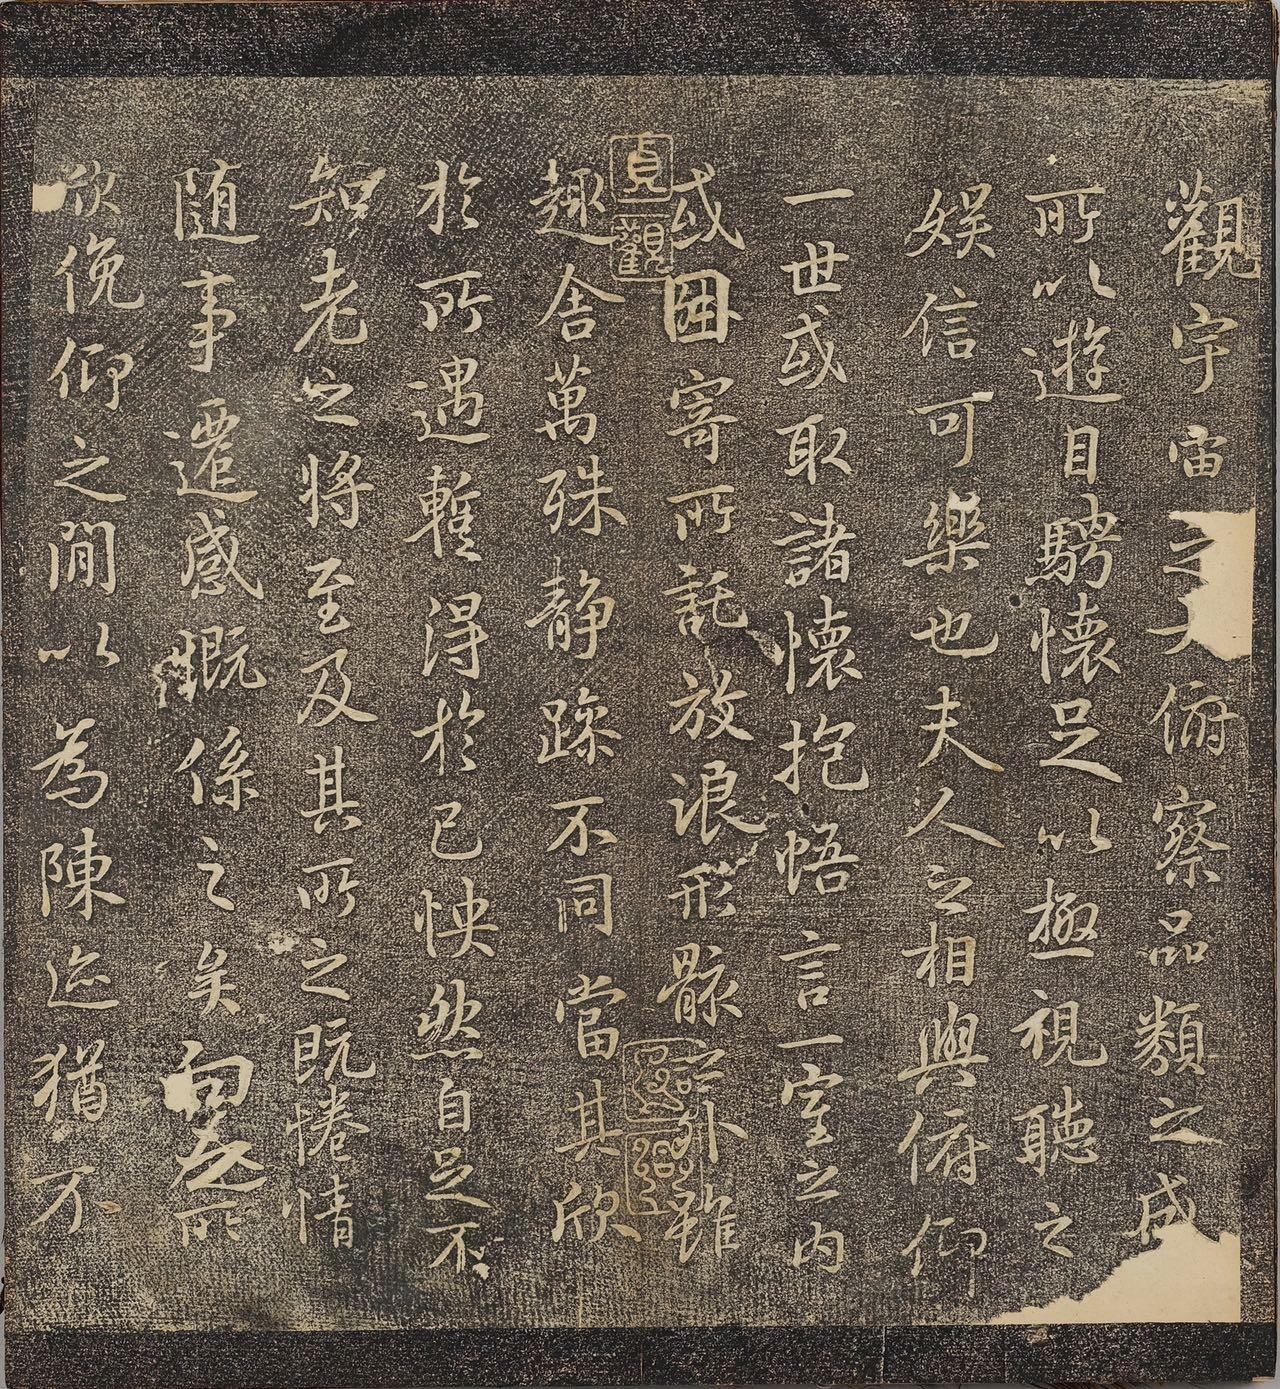 觀宇宙之大俯察品類之盛
所以遊目騁懷足以極視聽之
娛信可樂也夫人之相與俯仰
一世或取諸懷抱悟言一室之內
或因寄所託放浪形骸之外雖
趣舍萬殊静躁不同當其欣
於所遇蹔得於己怏然自足不
知老之將至及其所之既惓情
随事遷感慨係之矣向之所
欣俛仰之閒以為陳迹猶不
貞觀